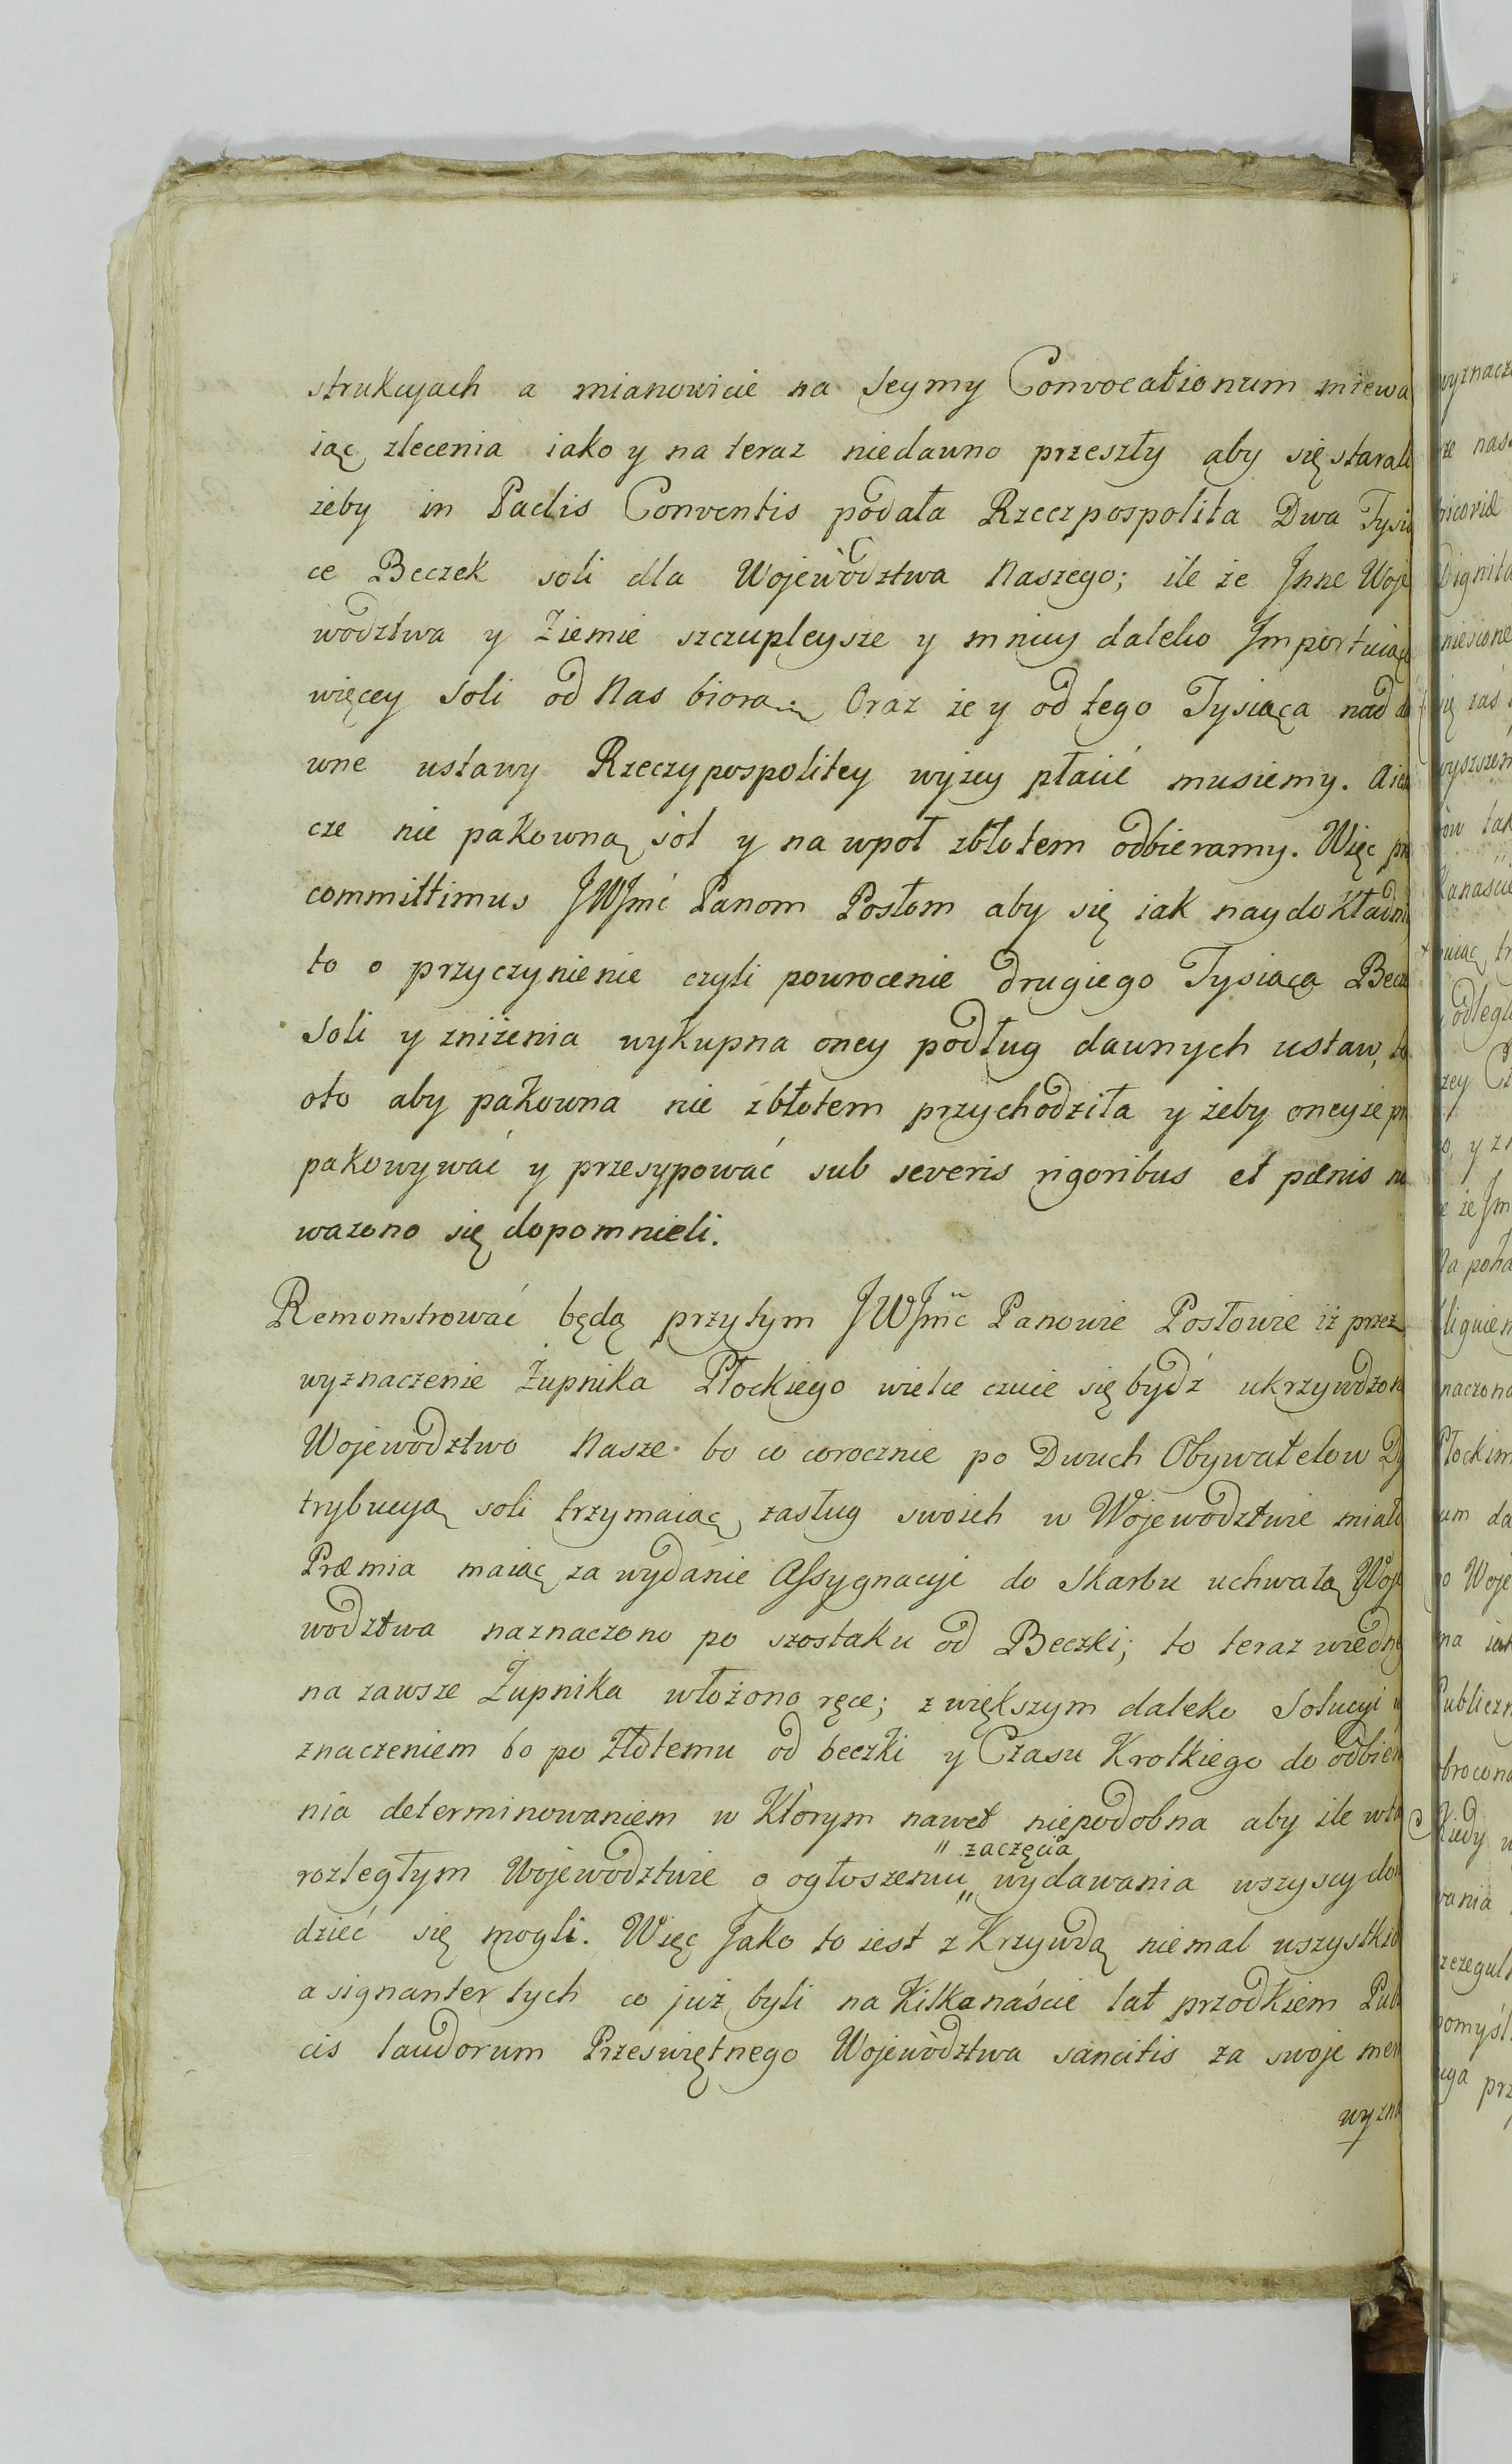 strukcyach a mianowicie na Seymy Convocationum miewa
iąc zlecenia iako y na teraz niedawno przeszły aby się starali
żeby in Pactis Conventis podała Rzeczpospolita Dwa Tysią
ce Beczek soli dla Województwa Naszego; ile że Jnne Woje
wodztwa y Ziemie szczupleysze y mniey daleko Jmportuiące
więcey Soli od Nas biorą. Oraz że y od tego Tysiąca nad da
wne ustawy Rzeczypospolitey wyżey płacić musiemy. A iesz
cze nie pakowną sól y na wpoł zbłotem odbieramy. Więc
committimus JWJmć Panom Posłom aby się iak naydokładni
to o przyczynienie czyli powrocenie drugiego Tysiąca Becze
Soli y zniżenia wykupna oney podług dawnych ustaw, to
oto aby pakowna nie zbłotem przychodziła y żeby oneyże
pakowywać y przesypować sub severis rigoribus et pænis
ważono się dopomnieli.
Remonstrować będą przytym JWJmć Panowie Posłowie iż przez
wyznaczenie Żupnika Płockiego wielce czuie się bydź ukrzywdzon
Wojewodztwo Nasze bo co corocznie po Dwuch Obywatelow Dy
trybucyą soli trzymaiąc, zasług swoich w Wojewodztwie miało
Præmia maiąc za wydanie Assygnacyi do Skarbu uchwałą Woje
wodztwa naznaczono po szostaku od Beczki; to teraz wiedne
na zawsze Żupnika włożono ręce; z większym daleko Solucyi
znaczeniem bo po Złotemu od beczki y Czasu Krotkiego do odbiera
nia determinowaniem w Którym nawet niepodobna aby ile wta
rozległym Wojewodztwie o ogłoszeniu " zaczęcia " wydawania wszyscy dow
dzieć się mogli. Więc Jako to iest z Krzywdą niemal wszystkich
a signanter tych co już byli na Kilkanaście lat przodkiem Publ
cis laudorum Przeświętnego Województwa sancitis za swoje mer
wyzna